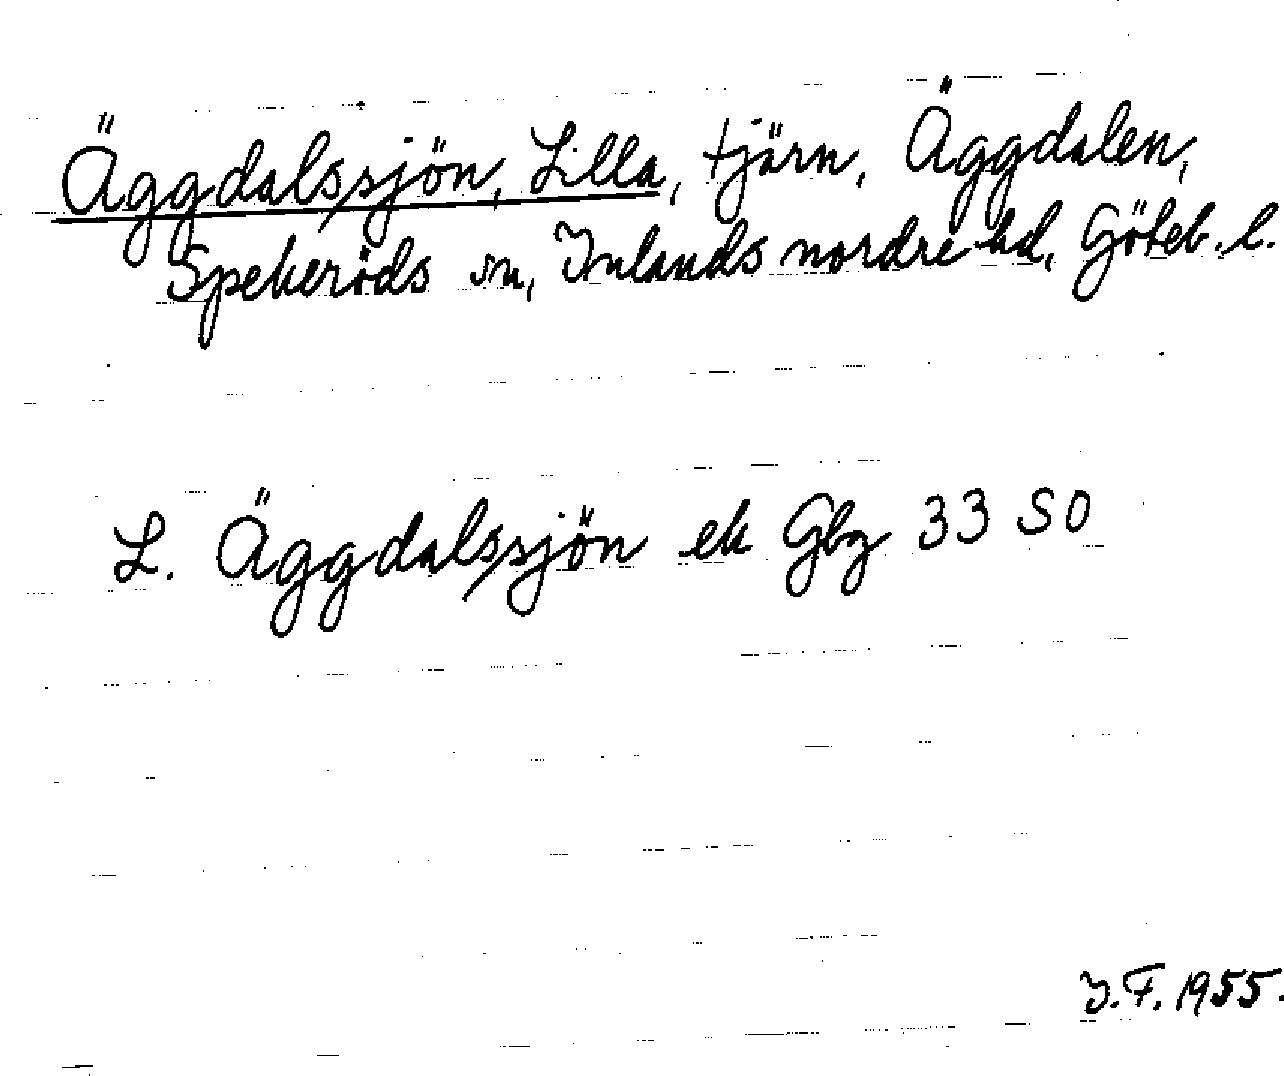 Äggdalssjön, Lilla, tjärn, Äggdalen,
Spekeröds sn, Inlands nordre hd, Göteb. l.
L. Äggdalssjön ek Gbg 33 SO
J.F. 1955.